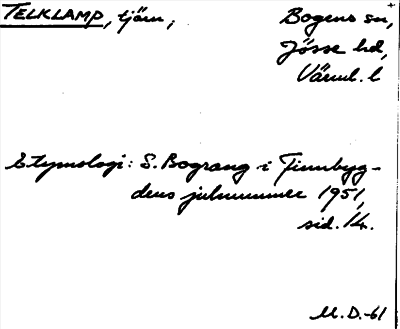 TELKLAMP, tjärn,
Bogens sn,
Jösse hd,
Värml. l
Etymologi: S. Bograng i Finnbyg-
dens julnummer 1951,
sid. 14.
M.D.-61